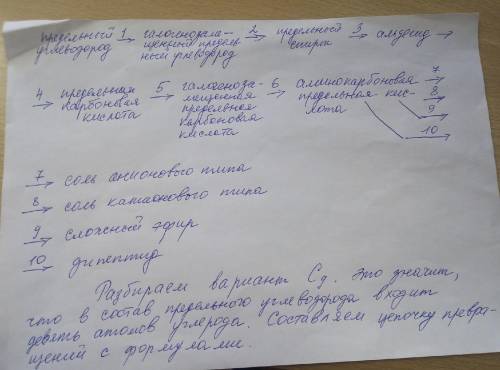 предельный 1 галогенозаме- 2 предельный 3 альдегид →
углеводород → щенный предель- → спирт →
ный углеводород
4 предельная 5 галогеноза- 6 аминокарбоновая 7
→ карбоновая → мещенная → предельная кис- 8
кислота предельная лота 9
карбоновая 10
кислота
7 → соль анионового типа
8 → соль катионового типа
9 → сложный эфир
10 → дипептид
Разбираем вариант C9. Это значит,
что в состав предельного углеводорода входит
девять атомов углерода. Составляем цепочку превра-
щений с формулами.